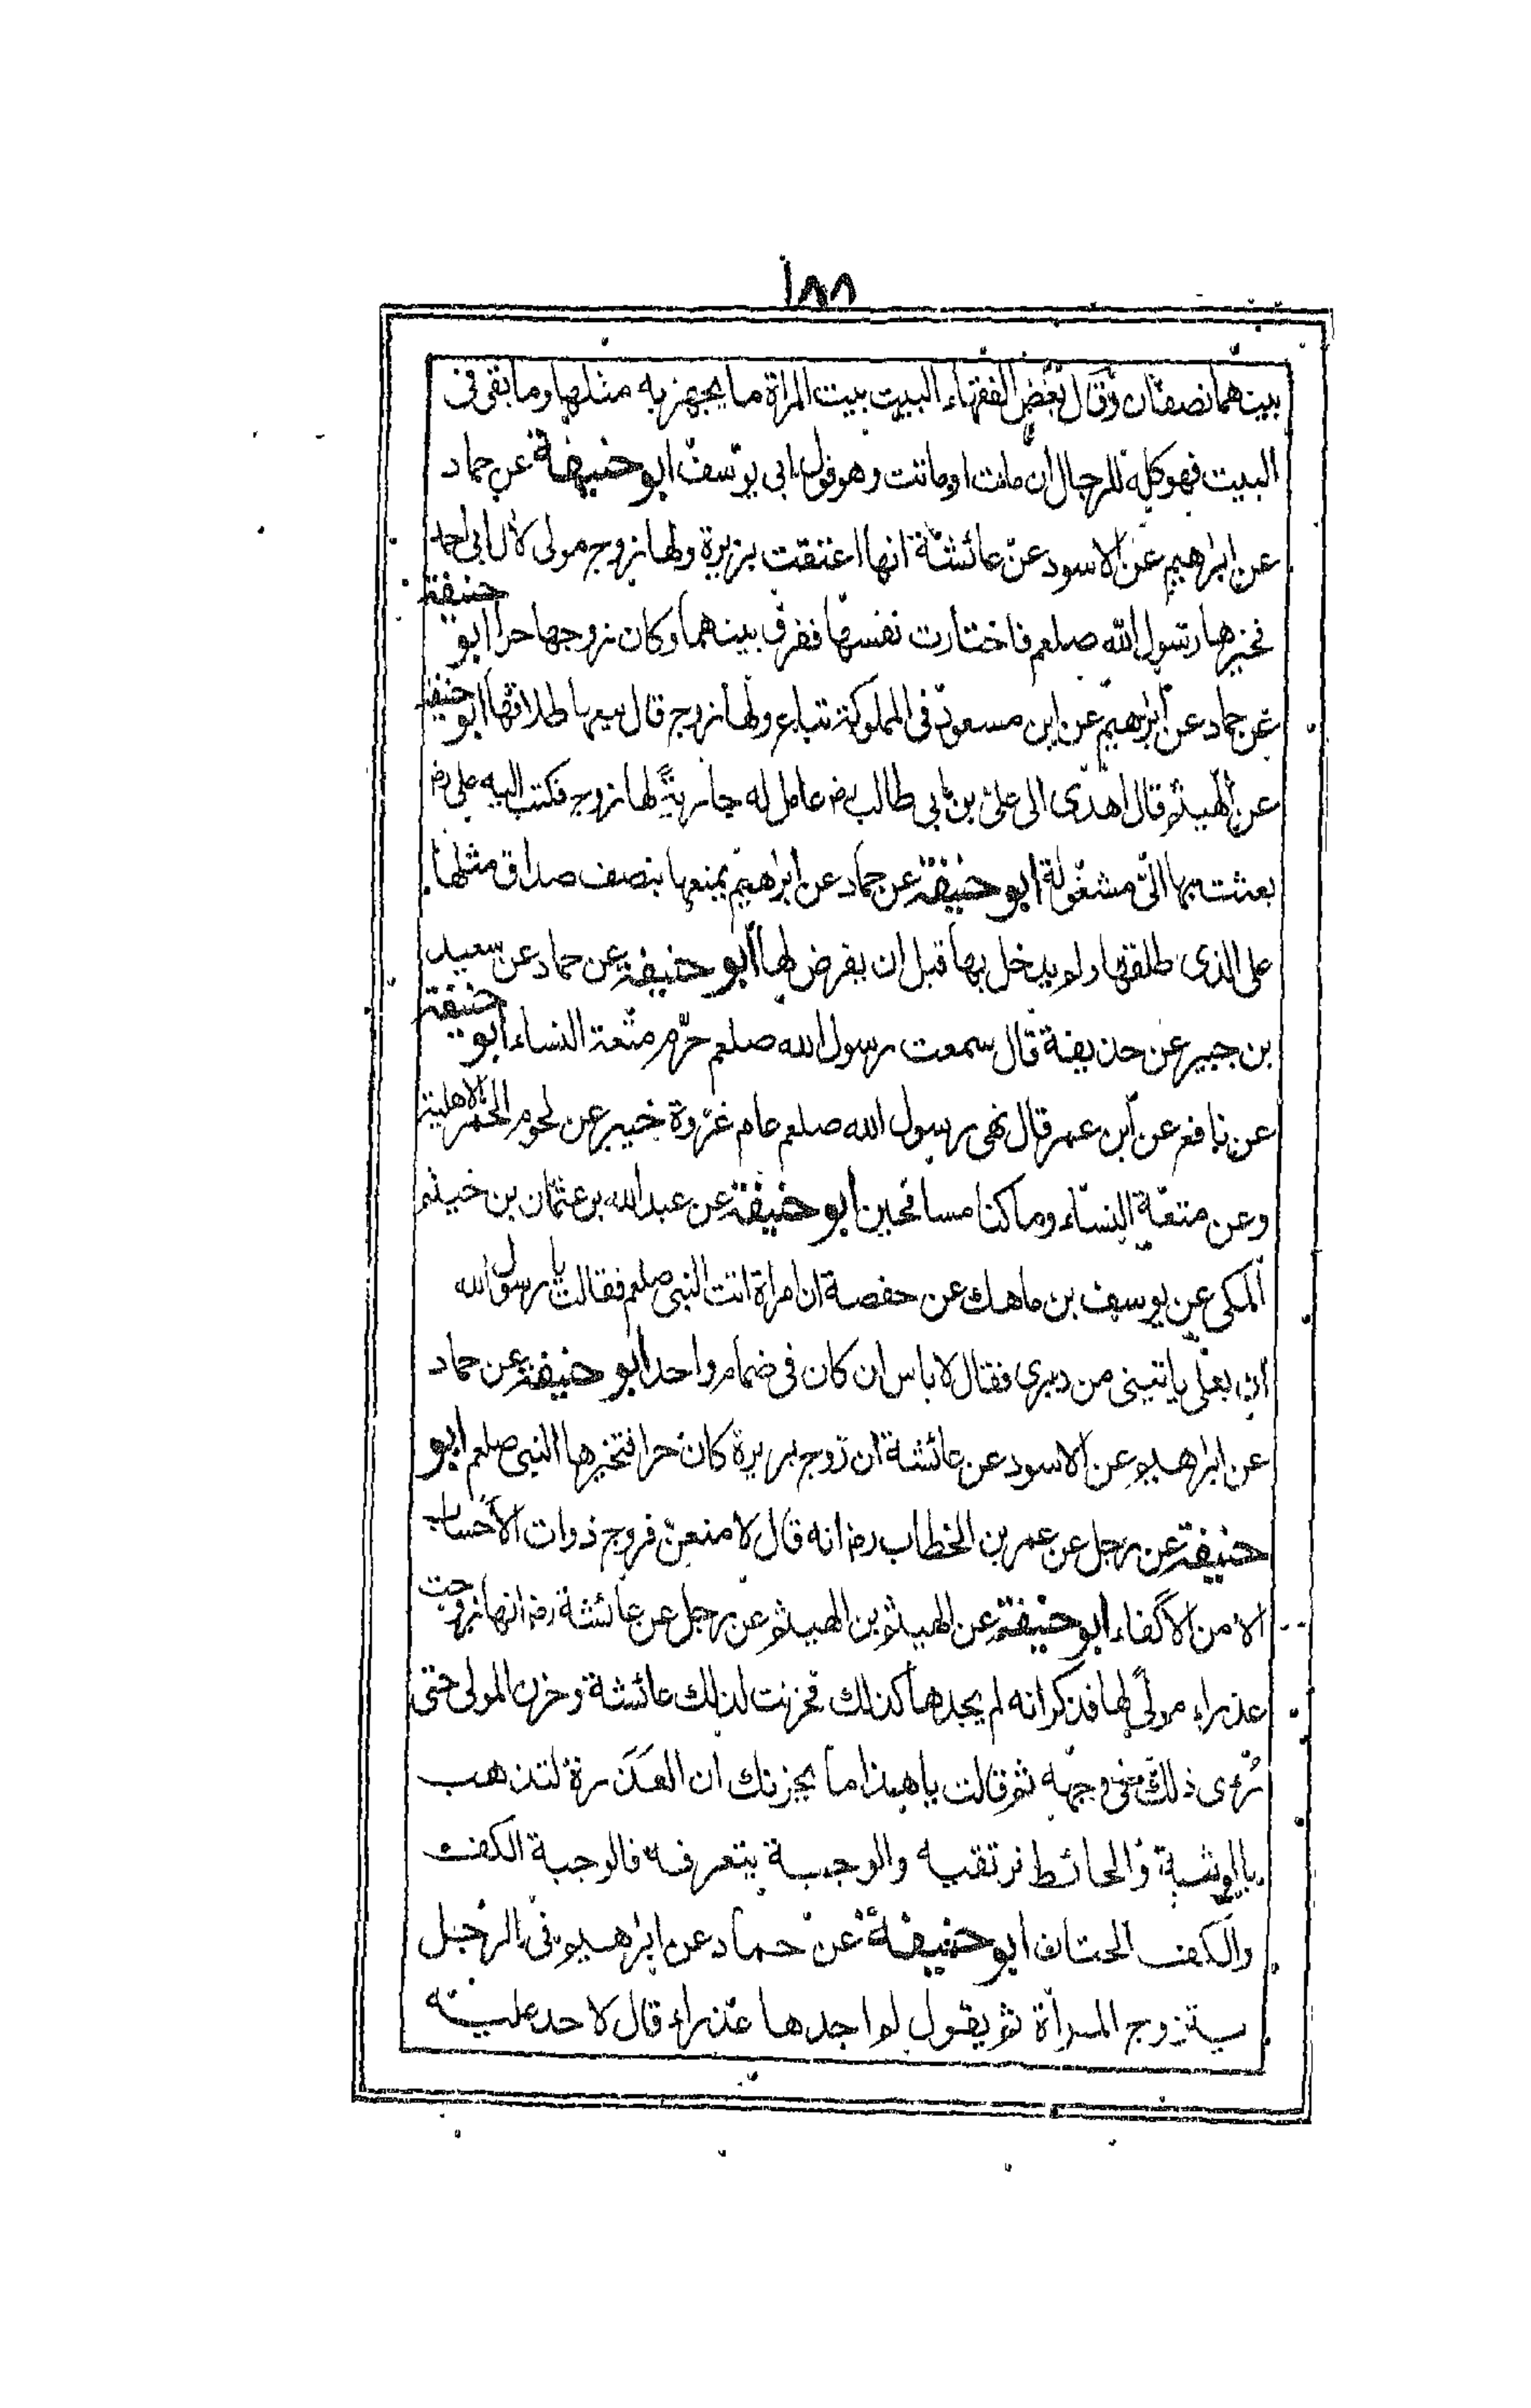 ١٨٨
بينهما نصفان وقال بعض الفقهاء البيت بيت المراة ما يجهز به مثلها وما بقى فى
البيت فهو كله للرجال ان مات او ماتت وهو قول ابى يوسف ابو حنيفة عن حماد
عن ابراهيم عن الاسود عن عائشة انها اعتقت بريرة ولها زوج مولى لال ابى احمد
فخيرها رسول الله صلعم فاختارت نفسها ففرق بينهما وكان زوجها حرا ابو حنيفة
عن حماد عن ابراهيم عن ابن مسعود فى المملوكة تباع ولها زوج قال بيعها طلاقها ابو حنيفة
عن الهيثم قال اهدى الى على بن ابى طالب رض عامل له جارية لها زوج فكتب اليه على رض
بعثت بها الىّ مشغولة ابو حنيفة عن حماد عن ابراهيم يمتعها بنصف صداق مثلها
على الذى طلقها ولم يدخل بها قبل ان يفرض لها ابو حنيفة عن حماد عن سعيد
بن جبير عن حذيفة قال سمعت رسول الله صلعم حرّم متعة النساء ابو حنيفة
عن نافع عن ابن عمر قال نهى رسول الله صلعم عام غزوة خيبر عن لحوم الحمر الاهلية
وعن متعة النساء وما كنا مسافحين ابو حنيفة عن عبد الله بن عثمان بن خيثم
المكى عن يوسف بن ماهك عن حفصة ان امراة اتت النبى صلعم فقالت يا رسول الله
ان بعلى ياتينى من دبرى فقال لا باس ان كان فى ضمام واحد ابو حنيفة عن حماد
عن ابراهيم عن الاسود عن عائشة ان زوج بريرة كان حرا فتخيرها النبى صلعم ابو
حنيفة عن رجل عن عمر بن الخطاب رض انه قال لامنعن فروج ذوات الاحساب
الا من الاكفاء ابو حنيفة عن الهيثم بن الهيثم عن رجل عن عائشة رض انها زوجت
عذراء مولى لها فذكر انه لم يجدها كذلك فحزنت لذلك عائشة وحزن المولى حتى
رُءى ذلك فى وجهه ثم قالت يا هذا ما يحزنك ان العذرة لتذهب
بالوثبة والحائط نرتقيه والوجبة يتعرفه فالوجبة الكفت
والكفت الختان ابو حنيفة عن حماد عن ابراهيم فى الرجل
يتزوج المراة ثم يقول لم اجدها عذراء قال لا حد عليه